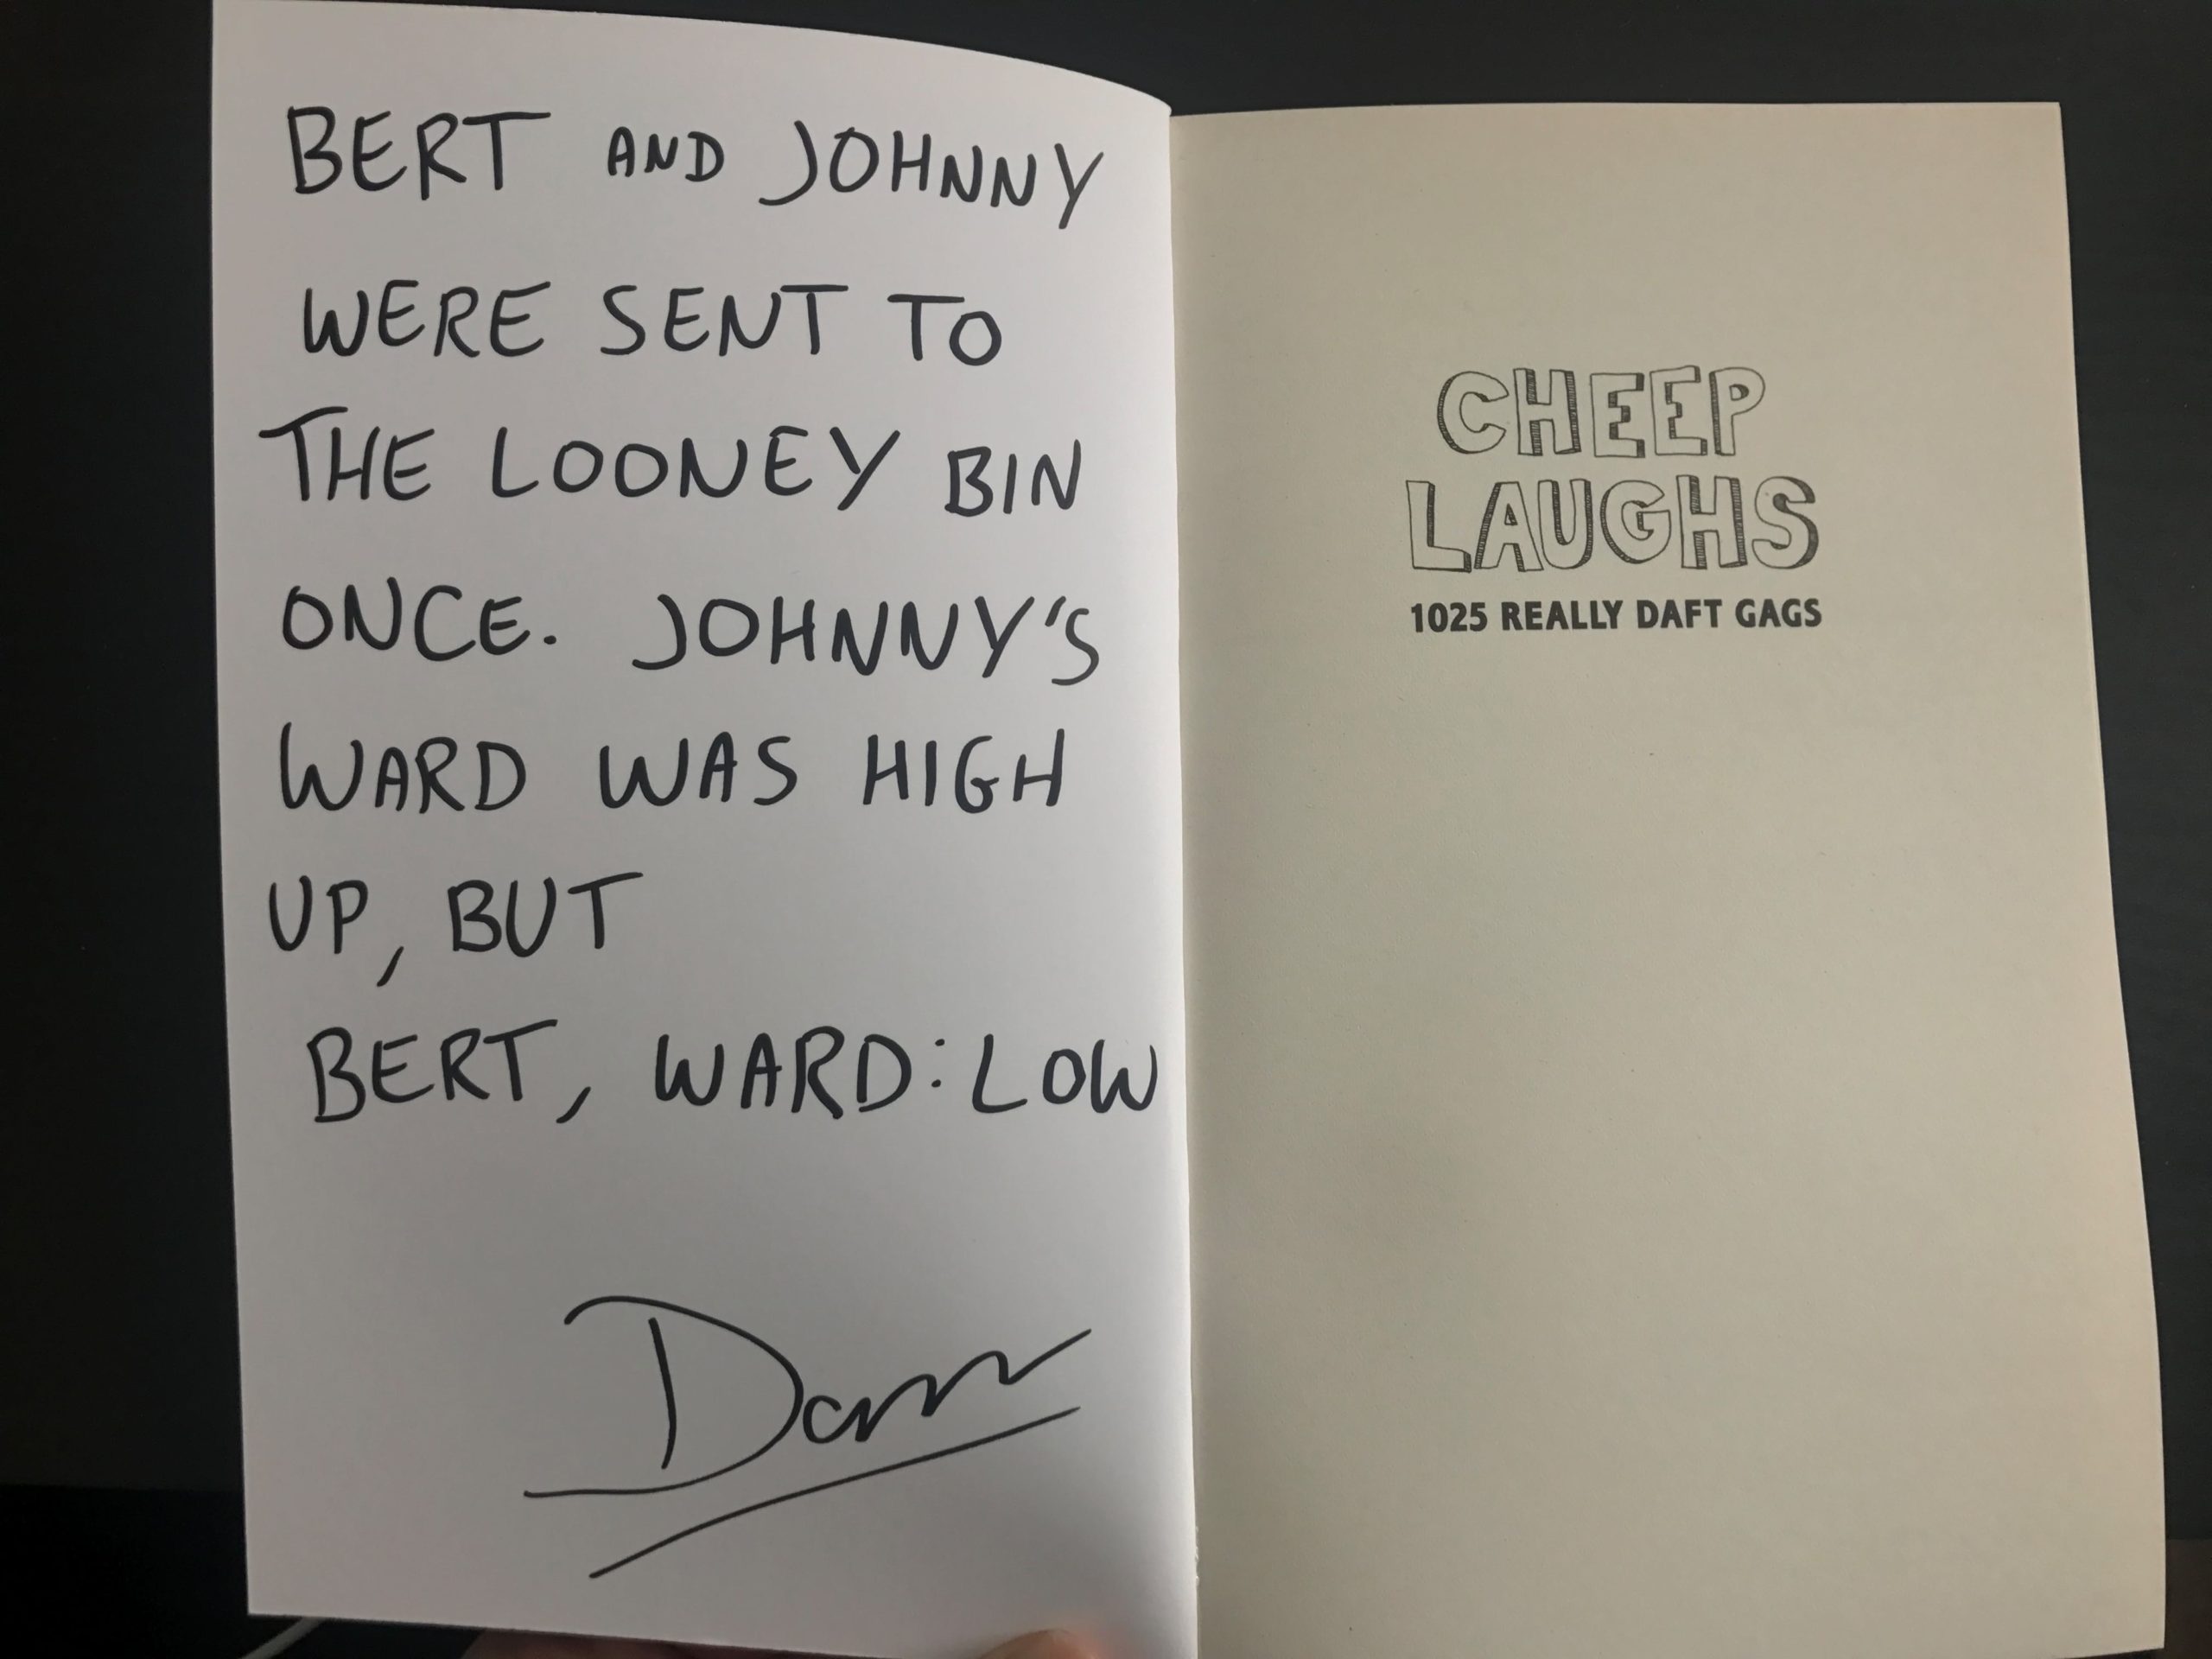 BERT AND JOHNNY
WERE SENT TO
THE LOONEY BIN
ONCE. JOHNNY'S
WARD WAS HIGH
UP, BUT
BERT, WARD: LOW
CHEEP
LAUGHS
1025 REALLY DAFT GAGS